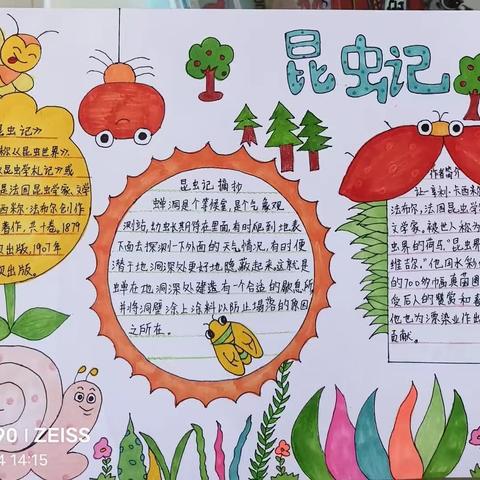 昆虫记
昆虫记》
称《昆虫世界》.
昆虫学札记》或
是法国昆虫学家,文学
西米尔·法布尔创作
著作,共十卷,1879
出版,1907年
出版.
昆虫记摘抄
蝉洞是个等候室,是个气象观
测站,幼虫长期待在里面有时爬到地表
下面去探测一下外面的天气情况,有时便
潜于地洞深处更好地隐蔽起来这就是
蝉在地洞深处建造有一个合适的歇息所
并将洞壁涂上涂料以防止塌落的原因
之所在。
作者简介
让-亨利·卡西米尔
法布尔,法国昆虫学
文学家,被世人称为
虫界的荷马"昆虫
维吉尔."他用水彩
的700多幅真菌图
受后人的赞赏和
他也为漂染业作出
贡献。
90 | ZEISS
4 14:15